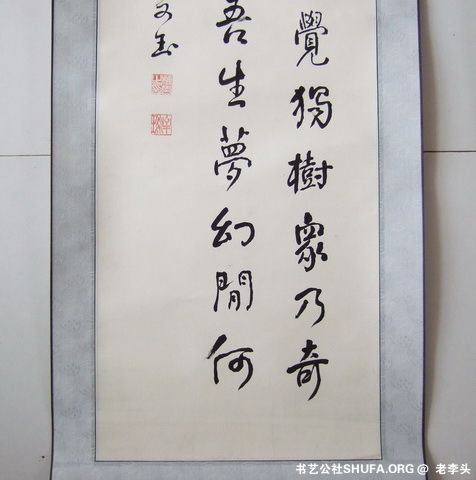 覺獨樹衆乃奇
吾生夢幻間何
书艺公社SHUFA.ORG @ 老李头